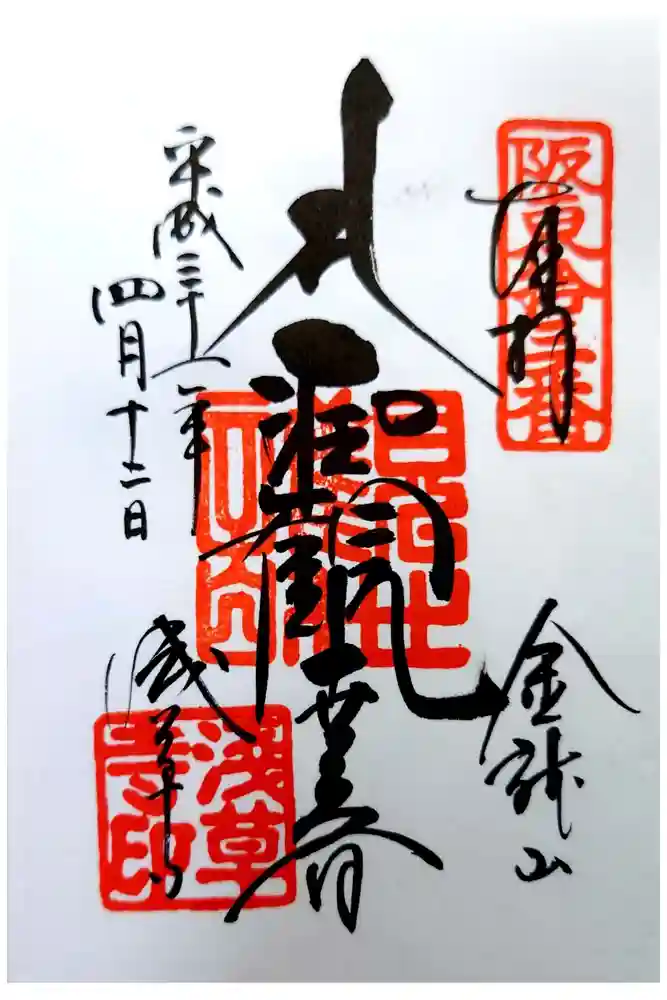 阪東拾三番
奉拝
金龍山
聖観世音
平成三十一年
四月十二日
浅草寺
浅草寺印